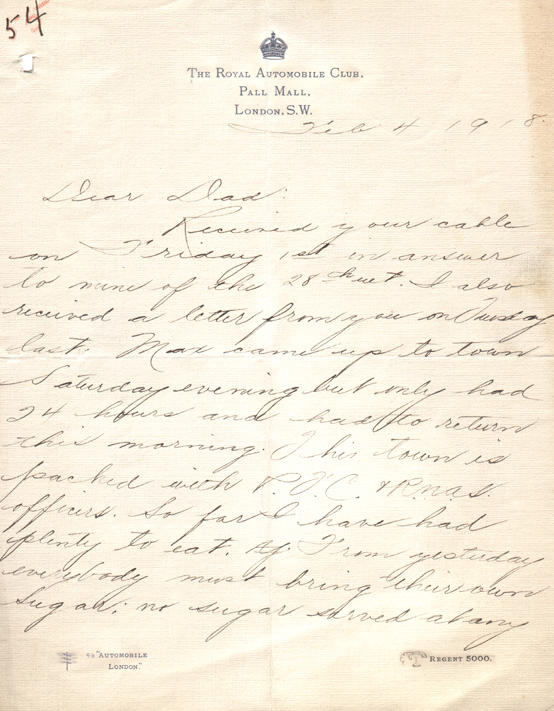 54
THE ROYAL AUTOMOBILE CLUB.
PALL MALL.
LONDON, S.W.
Feb 4 1918.
Dear Dad:
Received your cable
on Friday 1st in answer
to mine of the 28th ult. I also
received a letter from you on Tuesday
last. Max came up to town
Saturday evening but only had
24 hours and had to return
this morning. This town is
packed with R.F.C. & Rnas.
officers. So far I have had
plenty to eat. From yesterday
everybody must bring their own
sugar; no sugar served at any
"AUTOMOBILE
LONDON."
REGENT 5000.